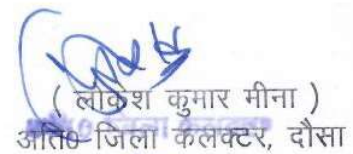 ( लोकेश कुमार मीना )
अति० जिला कलक्टर, दौसा